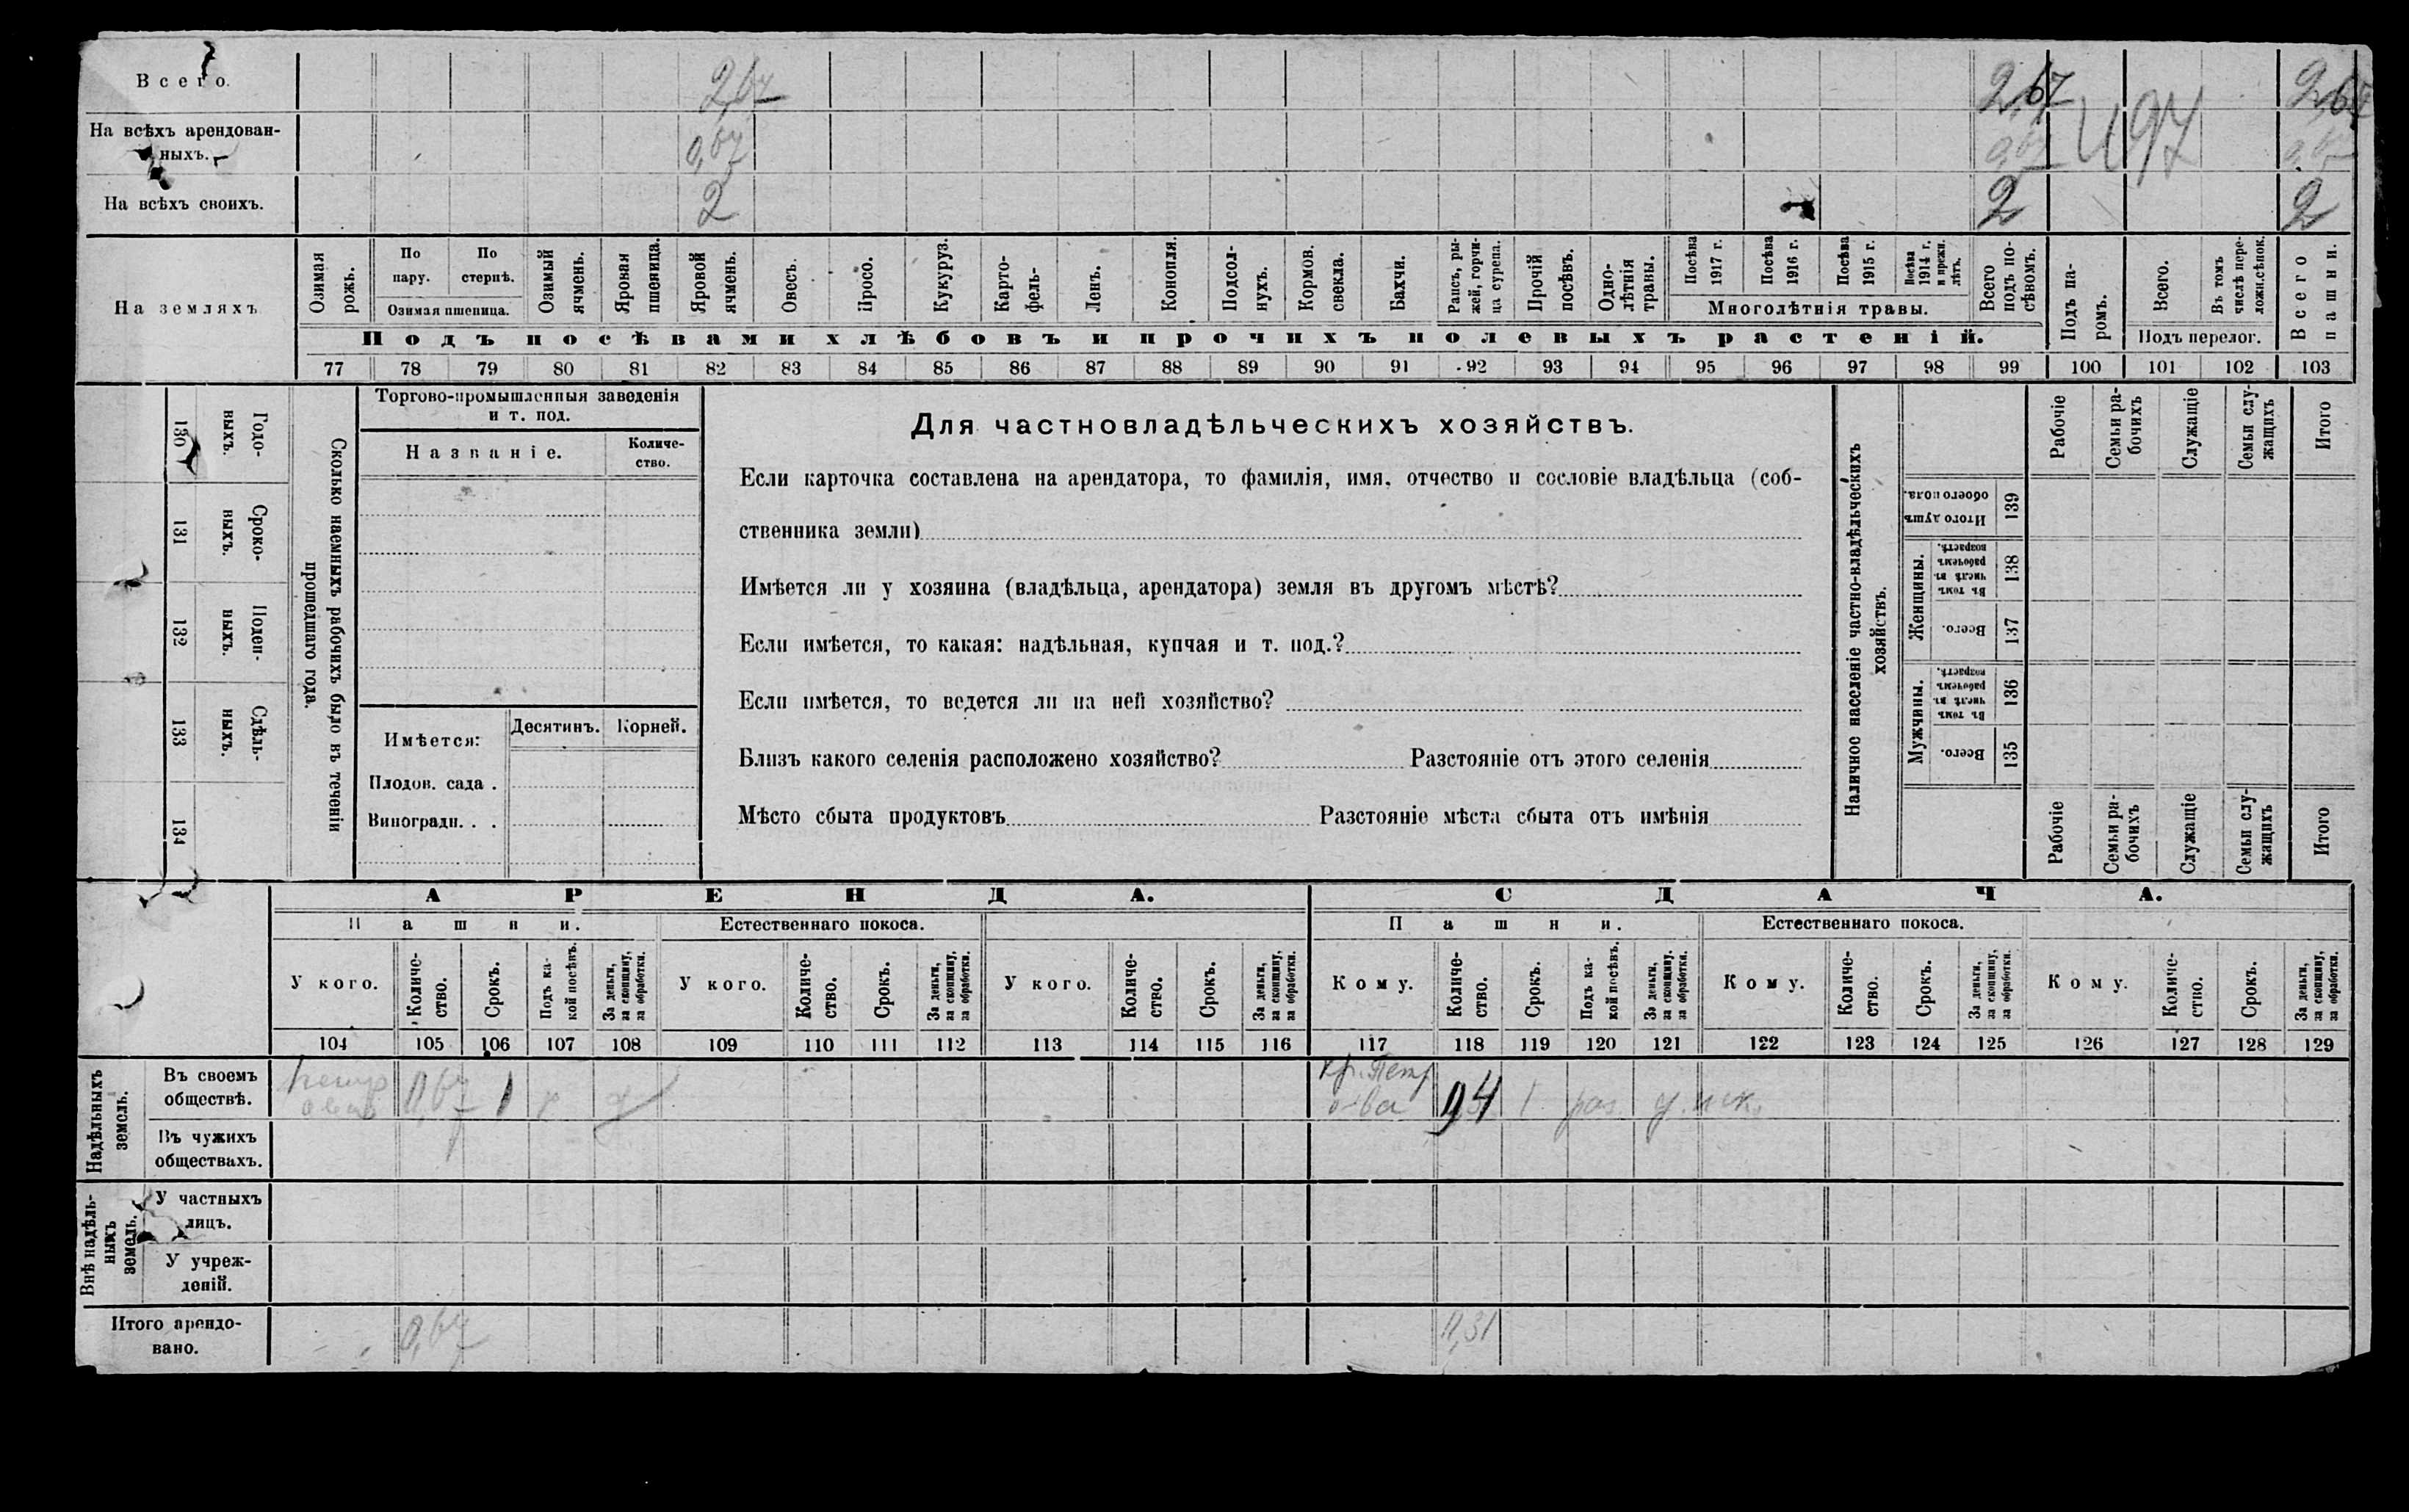 Всего. 2,67 2,67 2,67
На всѣхъ арендован-
ныхъ. 0,67 0,67
На всѣхъ своихъ. 2 2 2
На земляхъ
Озимая рожь.
По пару.
По стернѣ.
Озимая пшеница.
Озимый ячмень.
Яровая пшеница.
Яровой ячмень.
Овесъ.
Просо.
Кукуруз.
Карто-
фель-
Ленъ.
Конопля.
Подсол-
нухъ.
Кормов. свекла.
Бахчи.
Рапсъ, ры-
жей, горчи-
ца сурепа.
Прочій посѣвъ.
Одно-
лѣтнія травы.
Посѣва 1917 г.
Посѣва 1916 г.
Посѣва 1915 г.
Посѣва 1914 г. и прежн. лѣтъ.
Многолѣтнія травы.
Всего подъ по-
сѣвомъ.
Подъ па-
ромъ.
Всего.
Въ томъ числѣ пере-
ложн.сѣнок.
Подъ перелог.
Всего пашни.
Подъ посѣвами хлѣбовъ и прочихъ полевыхъ растеній.
77 78 79 80 81 82 83 84 85 86 87 88 89 90 91 92 93 94 95 96 97 98 99 100 101 102 103
Годо-
выхъ.
130
Сроко-
ныхъ.
131
Поден-
ныхъ.
132
Сдѣль-
ныхъ.
133
134
Сколько наемныхъ рабочихъ было въ теченіи
прошедшаго года.
Торгово-промышленныя заведенія
и т. под.
Названіе.
Количе-
ство.
Имѣется:
Десятинъ. Корней.
Плодов. сада .
Виноградн. . .
Для частновладѣльческихъ хозяйствъ.
Если карточка составлена на арендатора, то фамилія, имя, отчество и сословіе владѣльца (соб-
ственника земли)
Имѣется ли у хозяина (владѣльца, арендатора) земля въ другомъ мѣстѣ?
Если имѣется, то какая: надѣльная, купчая и т. под.?
Если имѣется, то ведется ли на ней хозяйство?
Близъ какого селенія расположено хозяйство? Разстояніе отъ этого селенія
Мѣсто сбыта продуктовъ Разстояніе мѣста сбыта отъ имѣнія
Наличное населеніе частно-владѣльческихъ
хозяйствъ.
Рабочіе
Семьи ра-
бочихъ
Служащіе
Семьи слу-
жащихъ
Итого
Итого душъ обоего пола.
139
Женщины.
Въ томъ числѣ въ рабочемъ возрастѣ.
138
Всего.
137
Мужчины.
Въ томъ числѣ въ рабочемъ возрастѣ.
136
Всего.
135
Рабочіе
Семьи ра-
бочихъ
Служащіе
Семьи слу-
жащихъ
Итого
АРЕНДА. СДАЧА.
Пашни. Естественнаго покоса. Пашни. Естественнаго покоса.
У кого.
Количе-
ство.
Срокъ.
Подъ ка-
кой посѣвъ.
За деньги, за скопщину, за обработки.
У кого.
Количе-
ство.
Срокъ.
За деньги, за скопщину, за обработки.
У кого.
Количе-
ство.
Срокъ.
За деньги, за скопщину, за обработки.
Кому.
Количе-
ство.
Срокъ.
Подъ ка-
кой посѣвъ.
За деньги, за скопщину. за обработки.
Кому.
Количе-
ство.
Срокъ.
За деньги, за скопщину, за обработки.
Кому.
Количе-
ство.
Срокъ.
За деньги, за скопщину, за обработки.
104 105 106 107 108 109 110 111 112 113 114 115 116 117 118 119 120 121 122 123 124 125 126 127 128 129
Надѣльныхъ
земель.
Въ своемъ
обществѣ. 0,67 1 1
Въ чужихъ
обществахъ.
Внѣ надѣль-
ныхъ
земель.
У частныхъ
лицъ.
У учреж-
деній.
Итого арендо-
вано. 0,67